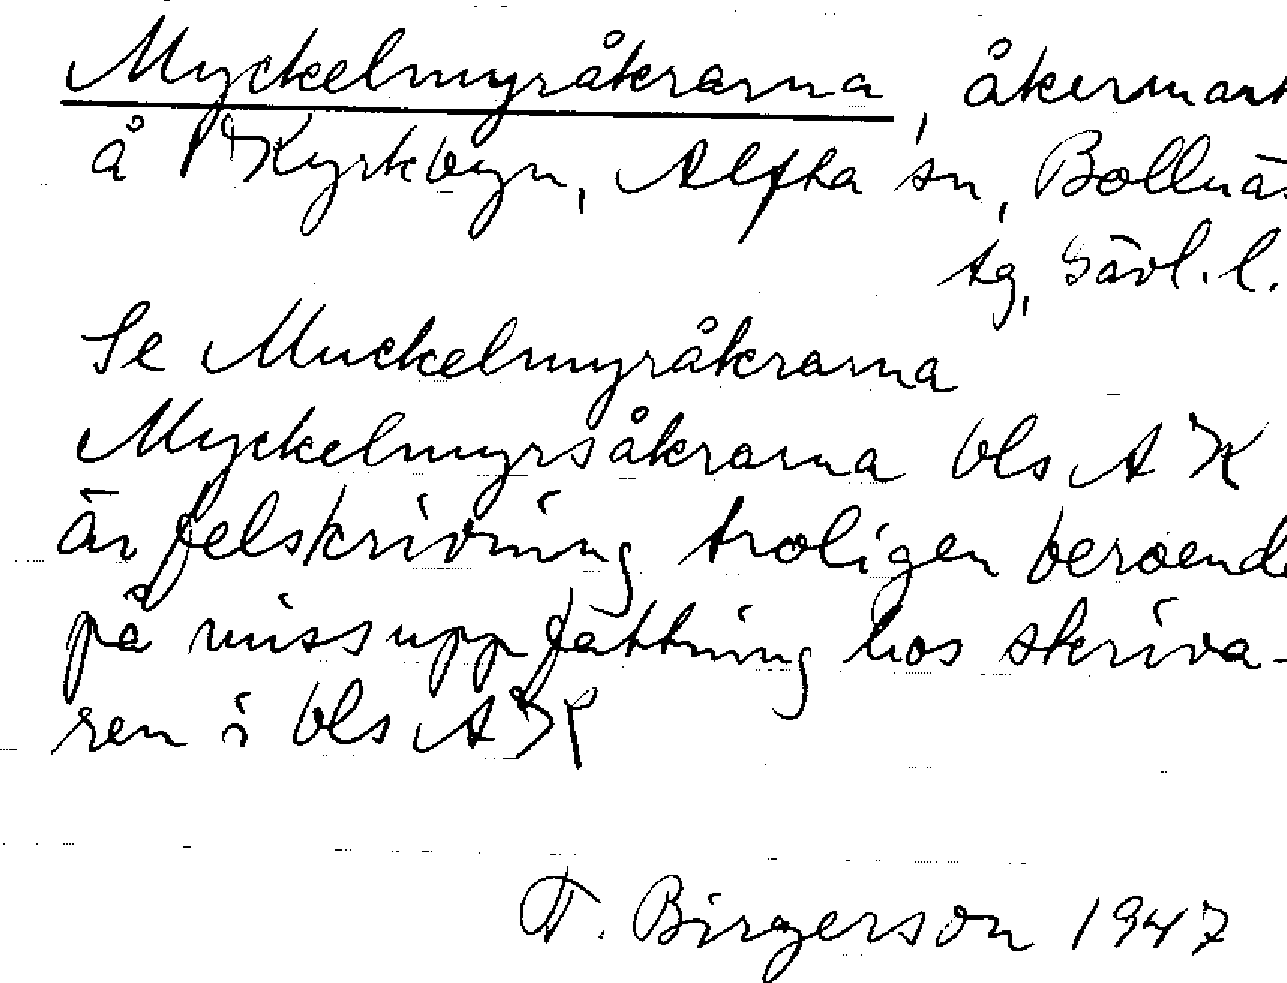 Myckelmyråkrarna, åkermark
å Kyrkbyn, Alfta sn, Bollnäs
tg, Gävl. l.
Se Muckelmyråkrarna
Myckelmyrsåkrarna bls AK
är felskrivning troligen beroende
på missuppfattning hos skriva-
ren i bls AK
F. Birgerson 1947